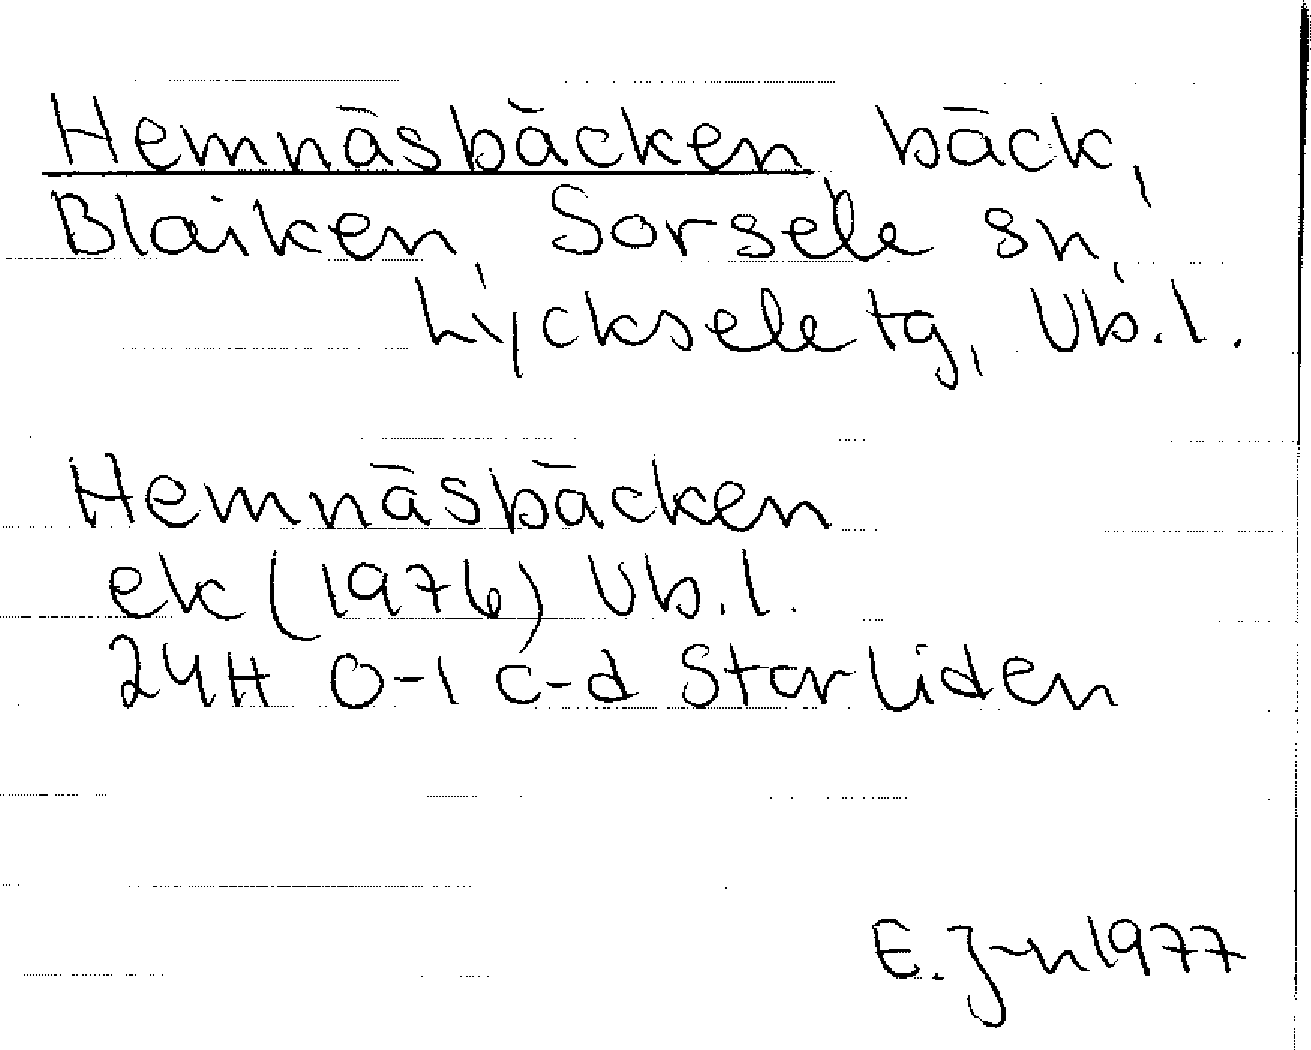 Hemnäsbäcken, bäck,
Blaiken, Sorsele sn,
Lycksele tg, Vb.l.
Hemnäsbäcken
ek (1976) Vb.l.
24H 0-1 c-d Storliden
E. J-n 1977